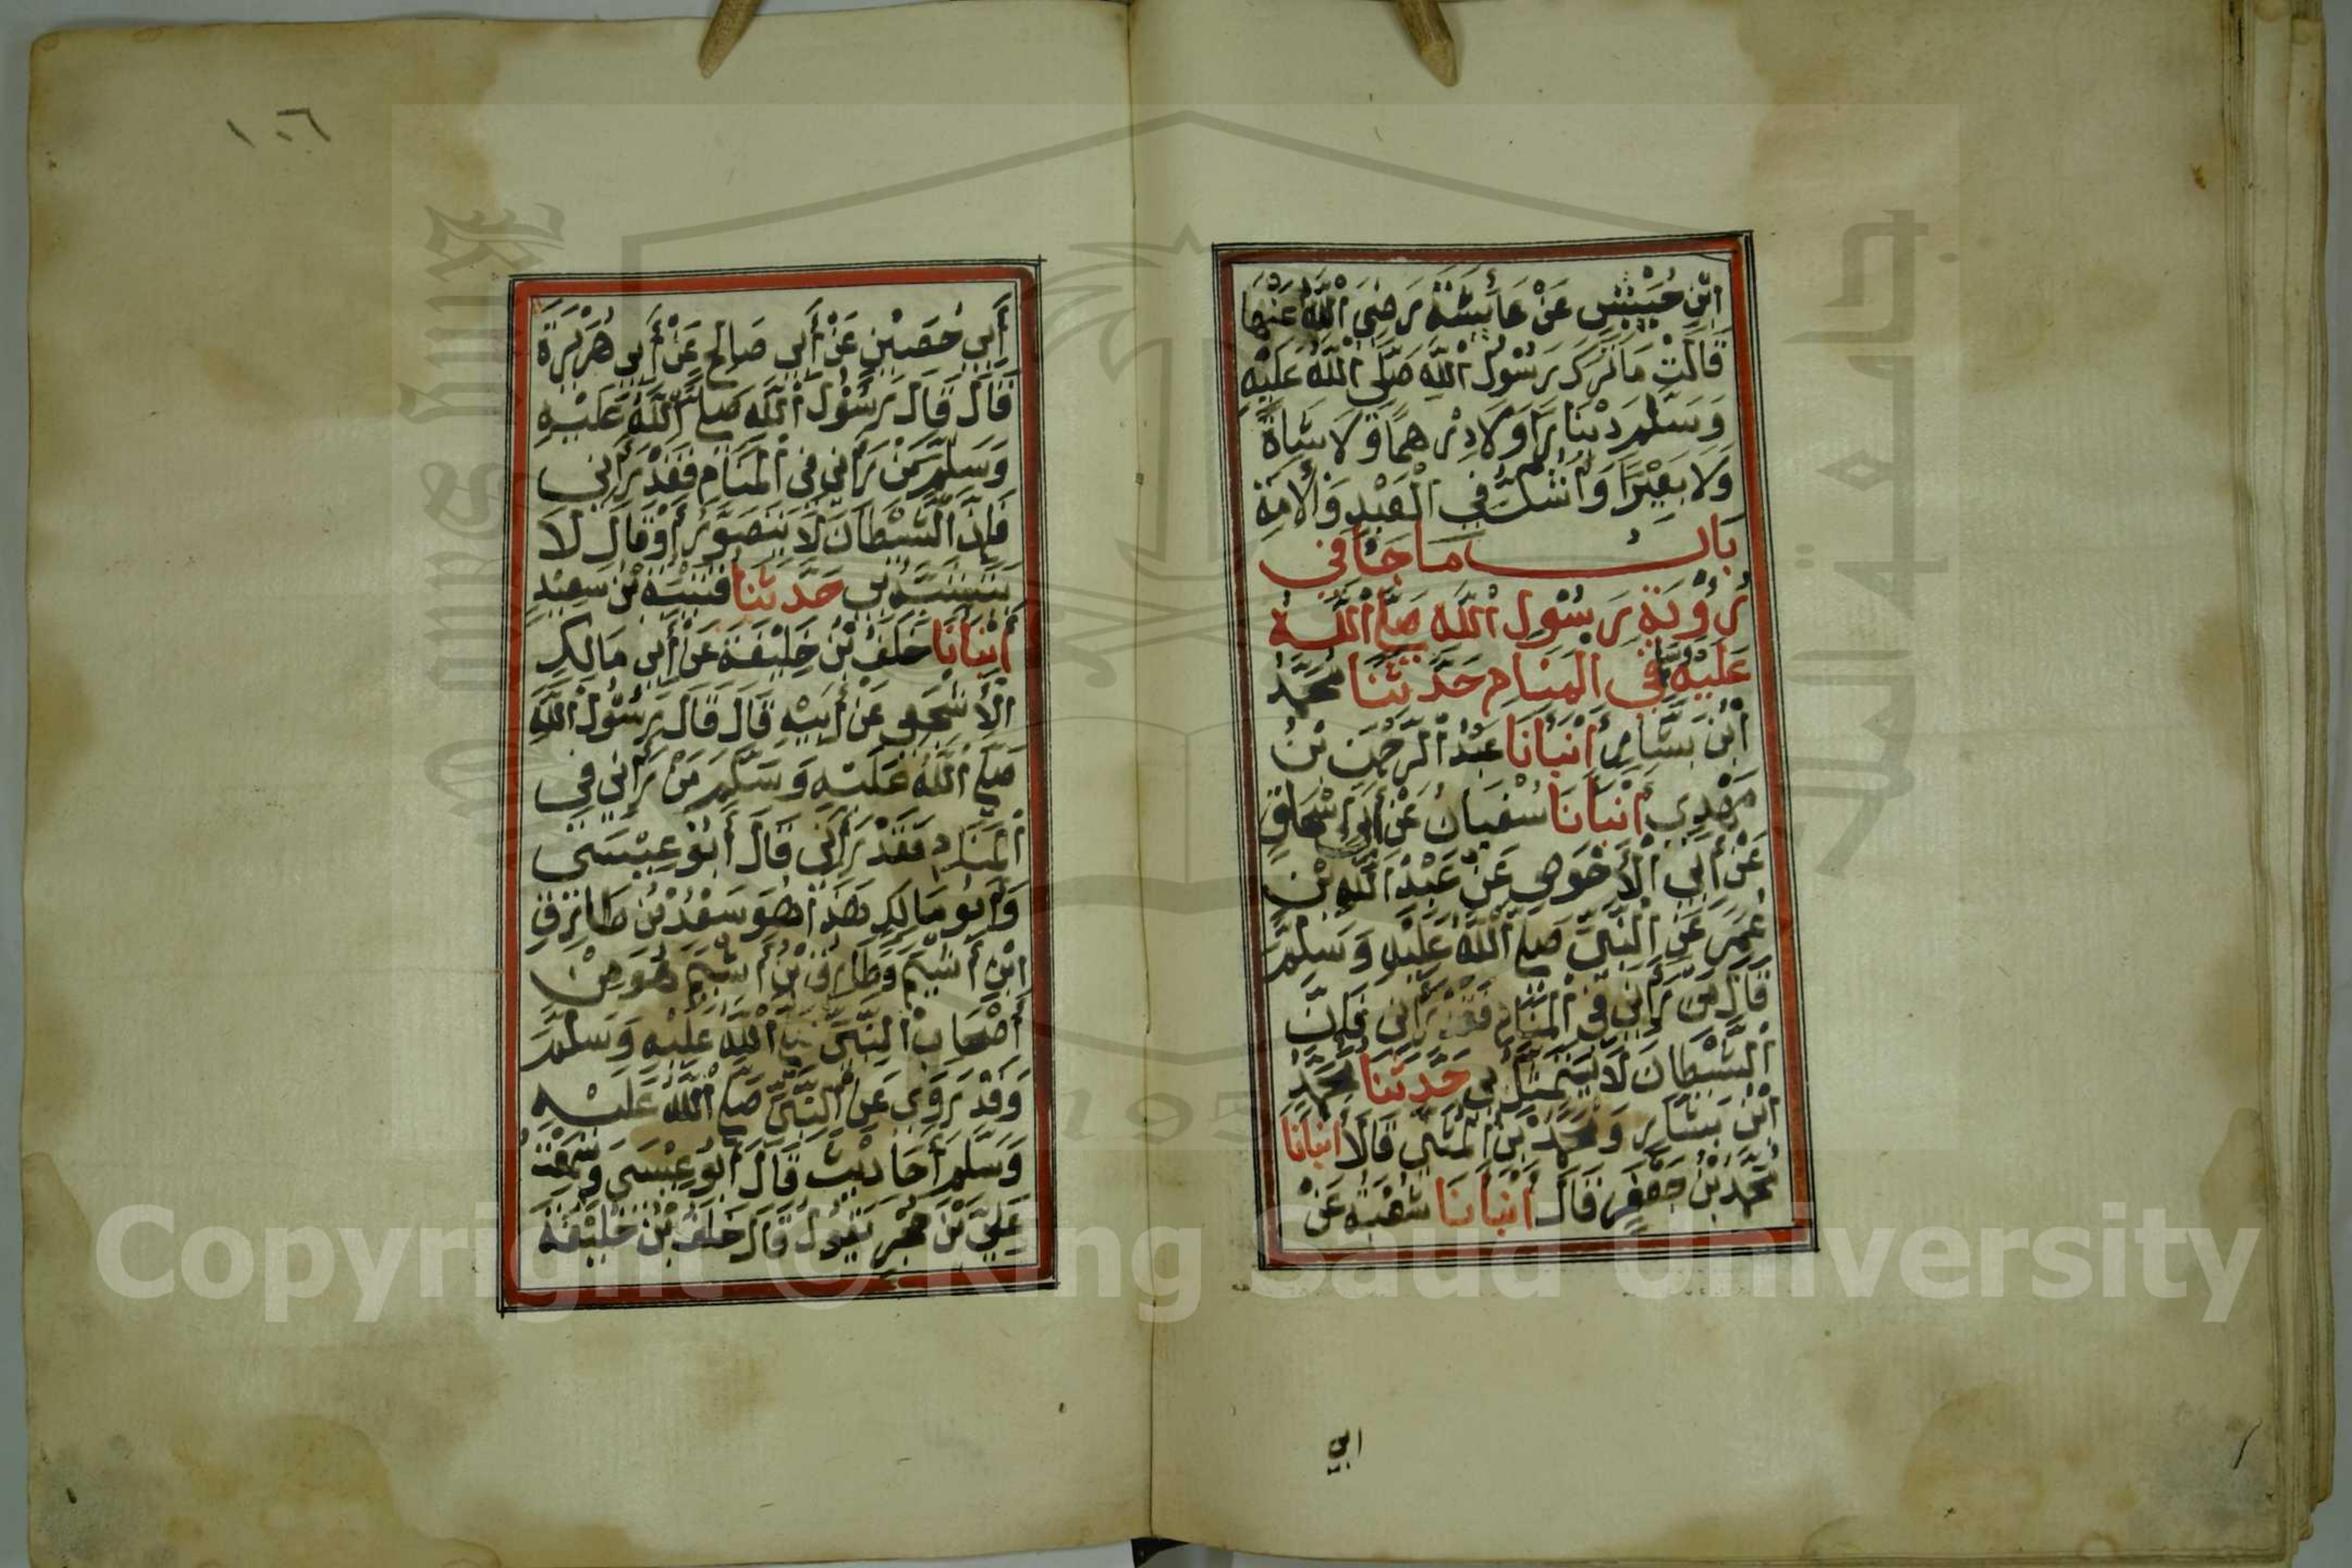 ابْنِ حُبَيْشٍ عَنْ عَائِشَةَ رَضِيَ اللَّهُ عَنْهَا
قَالَتْ مَا تَرَكَ رَسُولُ اللَّهِ صَلَّى اللَّهُ عَلَيْهِ
وَسَلَّمَ دِيْنَارًا وَلَا دِرْهَمًا وَلَا شَاةً
وَلَا بَعِيْرًا وَأَشُكُّ فِي الْعَبْدِ وَالْأَمَةِ
بَاب مَا جَاءَ فِي
رُؤْيَةِ رَسُوْلِ اللَّهِ صَلَّى اللَّهُ
عَلَيْهِ وَسَلَّمَ فِي الْمَنَامِ حَدَّثَنَا مُحَمَّدُ
ابْنُ بَشَّارٍ أَنْبَأَنَا عَبْدُ الرَّحْمَنِ بْنُ
مَهْدِي أَنْبَأَنَا سُفْيَانُ عَنْ أَبِي إِسْحَاقَ
عَنْ أَبِي الْأَحْوَصِ عَنْ عَبْدِ اللَّهِ بْنِ
عُمَرَ عَنِ النَّبِيِّ صَلَّى اللَّهُ عَلَيْهِ وَسَلَّمَ
قَالَ مَنْ رَأَنِي فِي الْمَنَامِ فَقَدْ رَأَنِي فَإِنَّ
الشَّيْطَانَ لَا يَتَمَثَّلُ بِي حَدَّثَنَا مُحَمَّدُ
ابْنُ بَشَّارٍ وَمُحَمَّدُ بْنُ الْمُثَنَّى قَالَا أَنْبَأَنَا
مُحَمَّدُ بْنُ جَعْفَرٍ قَالَ أَنْبَأَنَا شُعْبَةُ عَنْ
ابي
١٠٦
أَبِي حُصَيْنٍ عَنْ أَبِي صَالِحٍ عَنْ أَبِي هُرَيْرَةَ
قَالَ قَالَ رَسُوْلُ اللَّهِ صَلَّى اللَّهُ عَلَيْهِ
وَسَلَّمَ مَنْ رَأَنِي فِي الْمَنَامِ فَقَدْ رَأَنِي
فَإِنَّ الشَّيْطَانَ لَا يَتَصَوَّرُ أَوْ قَالَ لَا
يَتَشَبَّهُ بِي حَدَّثَنَا قُتَيْبَةُ بْنُ سَعِيْدٍ
أَنْبَأَنَا خَلَفُ بْنُ خَلِيْفَةَ عَنْ أَبِي مَالِكٍ
الْأَشْجَعِي عَنْ أَبِيْهِ قَالَ قَالَ رَسُوْلُ اللَّهِ
صَلَّى اللَّهُ عَلَيْهِ وَسَلَّمَ مَنْ رَأَنِي فِي
الْمَنَامِ فَقَدْ رَأَنِي قَالَ أَبُوْ عِيْسَى
وَأَبُو مَالِكٍ هَذَا هُوَ سَعْدُ بْنُ طَارِقِ
ابْنِ أَشْيَمَ وَطَارِقُ بْنُ أَشْيَمَ هُوَ مِنْ
أَصْحَابِ النَّبِيِّ صَلَّى اللَّهُ عَلَيْهِ وَسَلَّمَ
وَقَدْ رَوَى عَنِ النَّبِيِّ صَلَّى اللَّهُ عَلَيْهِ
وَسَلَّمَ أَحَادِيْثَ قَالَ أَبُو عِيْسَى وَسَمِعْتُ
عَلِيَّ بْنَ حُجْرٍ يَقُوْلُ قَالَ خَلَفُ بْنُ خَلِيْفَةَ
جامعة الملك سعود
King Saud University
1957
Copyright © King Saud University